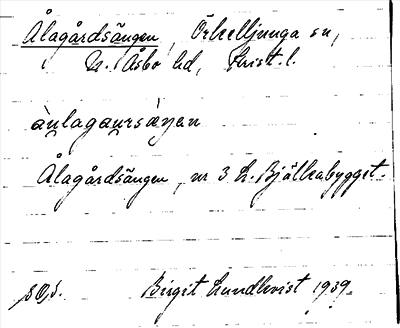 Ålagårdsängen, Örkelljunga sn,
N. Åsbo hd, Krist. l.
Ålagårdsängen, nr 3 L. Bjälkabygget.
Birgit Lundkvist 1939.